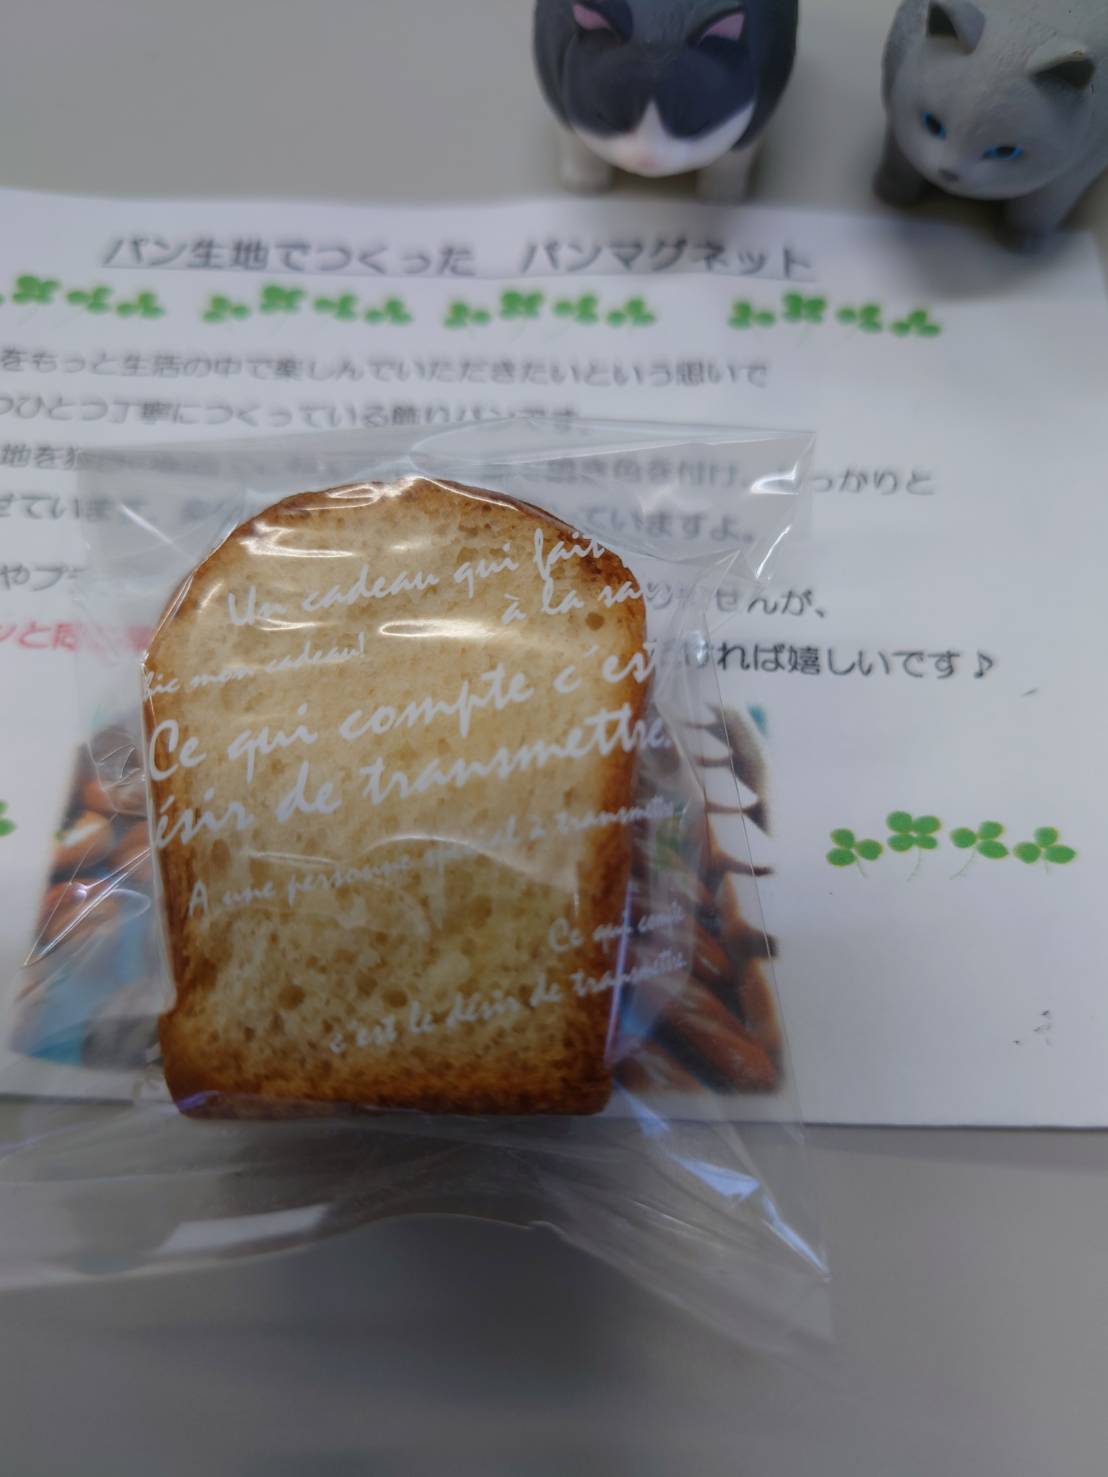 パン生地でつくった パンマグネット
をもっと生活の中で楽しんでいただきたいという思いで
つひとつ丁寧につくっている飾りパンです。
地を 焼き色を付け、しっかりと
せています ていますよ。
やプ せんが、
ければ嬉しいです♪
Un cadeau qui fait
à la
mon cadeau!
Ce qui compte c'est
ésir de transmettre.
A une personne spécial à transmettre
Ce qui
c'est le désir de transmettre.